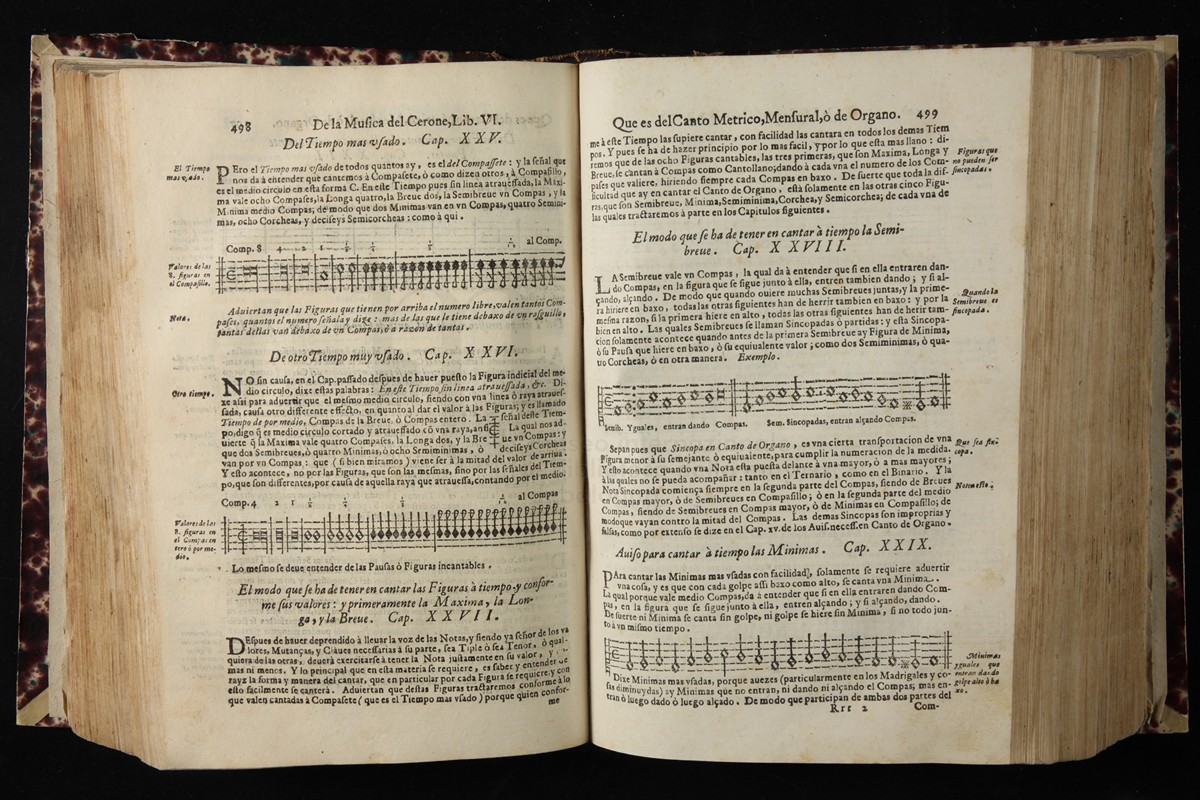 498 De la Musica del Cerone, Lib. VI.
Del Tiempo mas vsado. Cap. XXV.
El Tiempo
mas vsado.
PEro el Tiempo mas vsado de todos quantos ay, es el del Compassete: y la señal que
nos da à entender que cantemos à Compasete, ò como dizen otros, à Compasillo,
es el medio circulo en esta forma C. En este Tiempo pues sin linea atrauessada, la Maxi-
ma vale ocho Compases, la Longa quatro, la Breue dos, la Semibreue vn Compas, y la
Minima medio Compas; de modo que dos Minimas van en vn Compas, quatro Semini-
mas, ocho Corcheas, y deciseys Semicorcheas: como à qui.
Comp. 8 4 2 1 al Comp.
Valores de las
8. figuras en
el Compasillo.
Nota.
Aduiertan que las Figuras que tienen por arriba el numero libre, valen tantos Com-
pases, quantos el numero señala y dize: mas de las que le tiene debaxo de vn resguillo,
tantas dellas van debaxo de vn Compas, ò a razon de tantas.
De otro Tiempo muy vsado. Cap. XXVI.
Otro tiempo.
NO sin causa, en el Cap. passado despues de hauer puesto la Figura indicial del me-
dio circulo, dixe estas palabras: En este Tiempo sin linea atrauessada, &c. Di-
xe assi para aduertir que el mesmo medio circulo, siendo con vna linea ò raya atraues-
sada, causa otro differente effecto, en quanto al dar el valor à las Figuras; y es llamado
Tiempo de por medio, Compas de la Breue, ò Compas entero. La señal deste Tiem-
po, digo q̃ es medio circulo cortado y atrauessado cõ vna raya, ansi La qual nos ad-
uierte q̃ la Maxima vale quatro Compases, la Longa dos, y la Bre ue vn Compas: y
que dos Semibreues, ò quatro Minimas, ò ocho Semiminimas, ò deciseys Corcheas
van por vn Compas: que (si bien miramos) viene ser à la mitad del valor de arriua.
Y esto acontece, no por las Figuras, que son las mesmas, sino por las señales del Tiem-
po, que son differentes, por causa de aquella raya que atrauessa, contando por el medio.
Comp. 4 2 1 al Compas
Valores de las
8. figuras en
el Compas en
tero ò por me-
dio.
Lo mesmo se deue entender de las Pausas ò Figuras incantables.
El modo que se ha de tener en cantar las Figuras à tiempo, y confor-
me sus valores: y primeramente la Maxima, la Lon-
ga, y la Breue. Cap. XXVII.
DEspues de hauer deprendido à lleuar la voz de las Notas, y siendo ya señor de los va
lores, Mutanças, y Claues necessarias à su parte, sea Tiple ò sea Tenor, ò qual-
quiera de las otras, deuerà exercitarse à tener la Nota justamente en su valor, y
mas ni menos. Y lo principal que en esta materia se requiere, es saber y entender de
rayz la forma y manera del cantar, que en particular por cada Figura se require, y con
esto facilmente se canterà. Aduiertan que destas Figuras tractaremos conforme à lo
que valen cantadas à Compasete (que es el Tiempo mas vsado) porque quien confor-
me
Que es del Canto Metrico, Mensural, ò de Organo. 499
me à este Tiempo las supiere cantar, con facilidad las cantara en todos los demas Tiem
pos. Y pues se ha de hazer principio por lo mas facil, y por lo que esta mas llano: di-
remos que de las ocho Figuras cantables, las tres primeras, que son Maxima, Longa y
Breue, se cantan à Compas como Cantollano; dando à cada vna el numero de los Com-
pases que valiere, hiriendo siempre cada Compas en baxo. De suerte que toda la dif-
ficultad que ay en cantar el Canto de Organo, està solamente en las otras cinco Figu-
ras, que son Semibreue, Minima, Semiminima, Corchea, y Semicorchea; de cada vna de
las quales tractaremos à parte en los Capitulos siguientes.
Figuras que
no pueden ser
sincopadas.
El modo que se ha de tener en cantar à tiempo la Semi-
breue. Cap. XXVIII.
LA Semibreue vale vn Compas, la qual da à entender que si en ella entraren dan-
do Compas, en la figura que se sigue junto à ella, entren tambien dando; y si al-
çando, alçando. De modo que quando ouiere muchas Semibreues juntas, y la prime-
ra hiriere en baxo, todas las otras siguientes han de herrir tambien en baxo: y por la
mesma razon, si la primera hiere en alto, todas las otras siguientes han de herir tam-
bien en alto. Las quales Semibreues se llaman Sincopadas ò partidas: y esta Sincopa-
cion solamente acontece quando antes de la primera Semibreue ay Figura de Minima,
ò su Pausa que hiere en baxo, ò su equiualente valor; como dos Semiminimas, ò qua-
tro Corcheas, ò en otra manera. Exemplo.
Quando la
Semibreue es
sincopada.
Semib. Yguales, entran dando Compas. Sem. Sincopadas, entran alçando Compas.
Sepan pues que Sincopa en Canto de Organo, es vna cierta transportacion de vna
Figura menor à su semejante ò equiualente, para cumplir la numeracion de la medida.
Y esto acontece quando vna Nota esta puesta delante à vna mayor, ò a mas mayores;
à las quales no se pueda acompañar: tanto en el Ternario, como en el Binario. Y la
Nota Sincopada comiença siempre en la segunda parte del Compas, siendo de Breues
en Compas mayor, ò de Semibreues en Compasillo; ò en la segunda parte del medio
Compas, siendo de Semibreues en Compas mayor, ò de Minimas en Compasillo; de
modo que vayan contro la mitad del Compas. Las demas Sincopas son improprias y
falsas, como por extenso se dize en el Cap. xv. de los Auis. necess. en Canto de Organo.
Que sea sin-
copa.
Noten esto.
Auiso para cantar à tiempo las Minimas. Cap. XXIX.
PAra cantar las Minimas mas vsadas con facilidad, solamente se requiere aduertir
vna cosa, y es que con cada golpe assi baxo como alto, se canta vna Minima.
La qual porque vale medio Compas, da à entender que si en ella entraren dando Com-
pas, en la figura que se sigue junto à ella, entren alçando; y si alçando, dando.
De suerte ni Minima se canta sin golpe, ni golpe se hiere sin Minima, si no todo jun-
to à vn mismo tiempo.
Dixe Minimas mas vsadas, porque auezes (particularmente en los Madrigales y co-
sas diminuydas) ay Minimas que no entran, ni dando ni alçando el Compas; mas en-
tran ò luego dado ò luego alçado. De modo que participan de ambas dos partes del
Minimas
yguales que
entran dando
golpe alto ò ba
xo.
Rrr 2 Com-